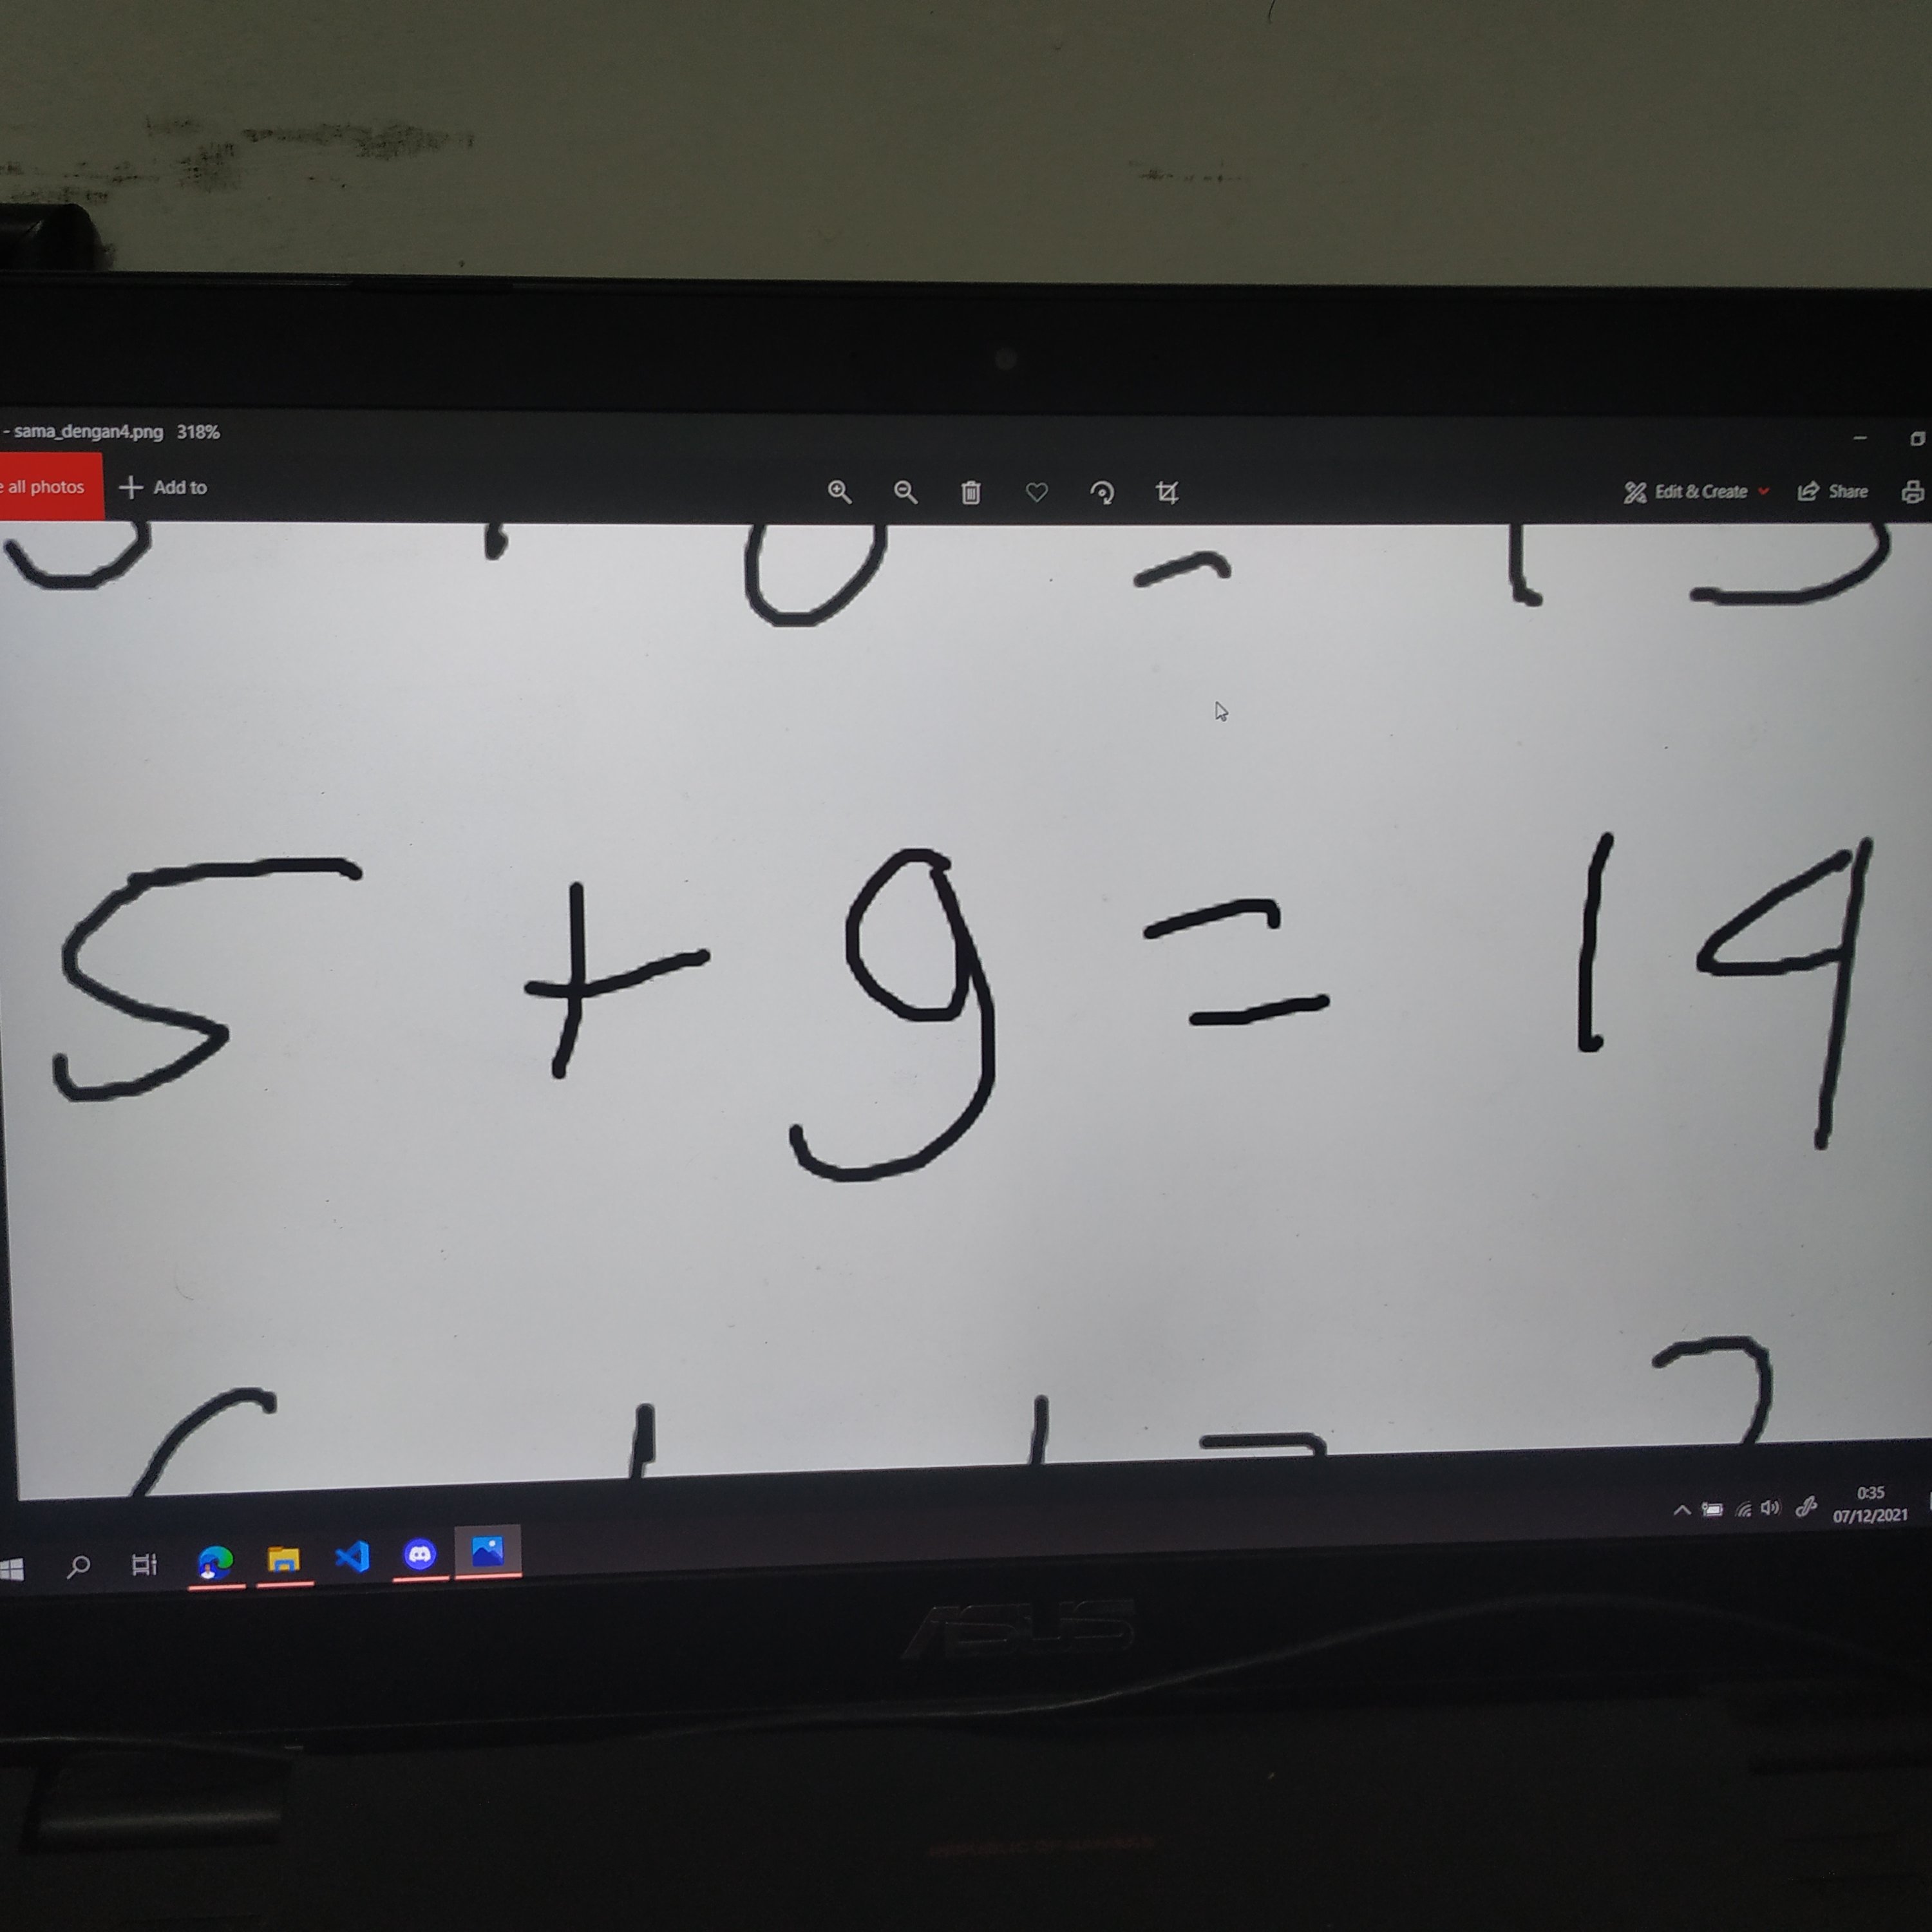 - sama_dengan4.png 318%
all photos + Add to Edit & Create Share
5 + 9 = 14
0:35
07/12/2021
ASUS